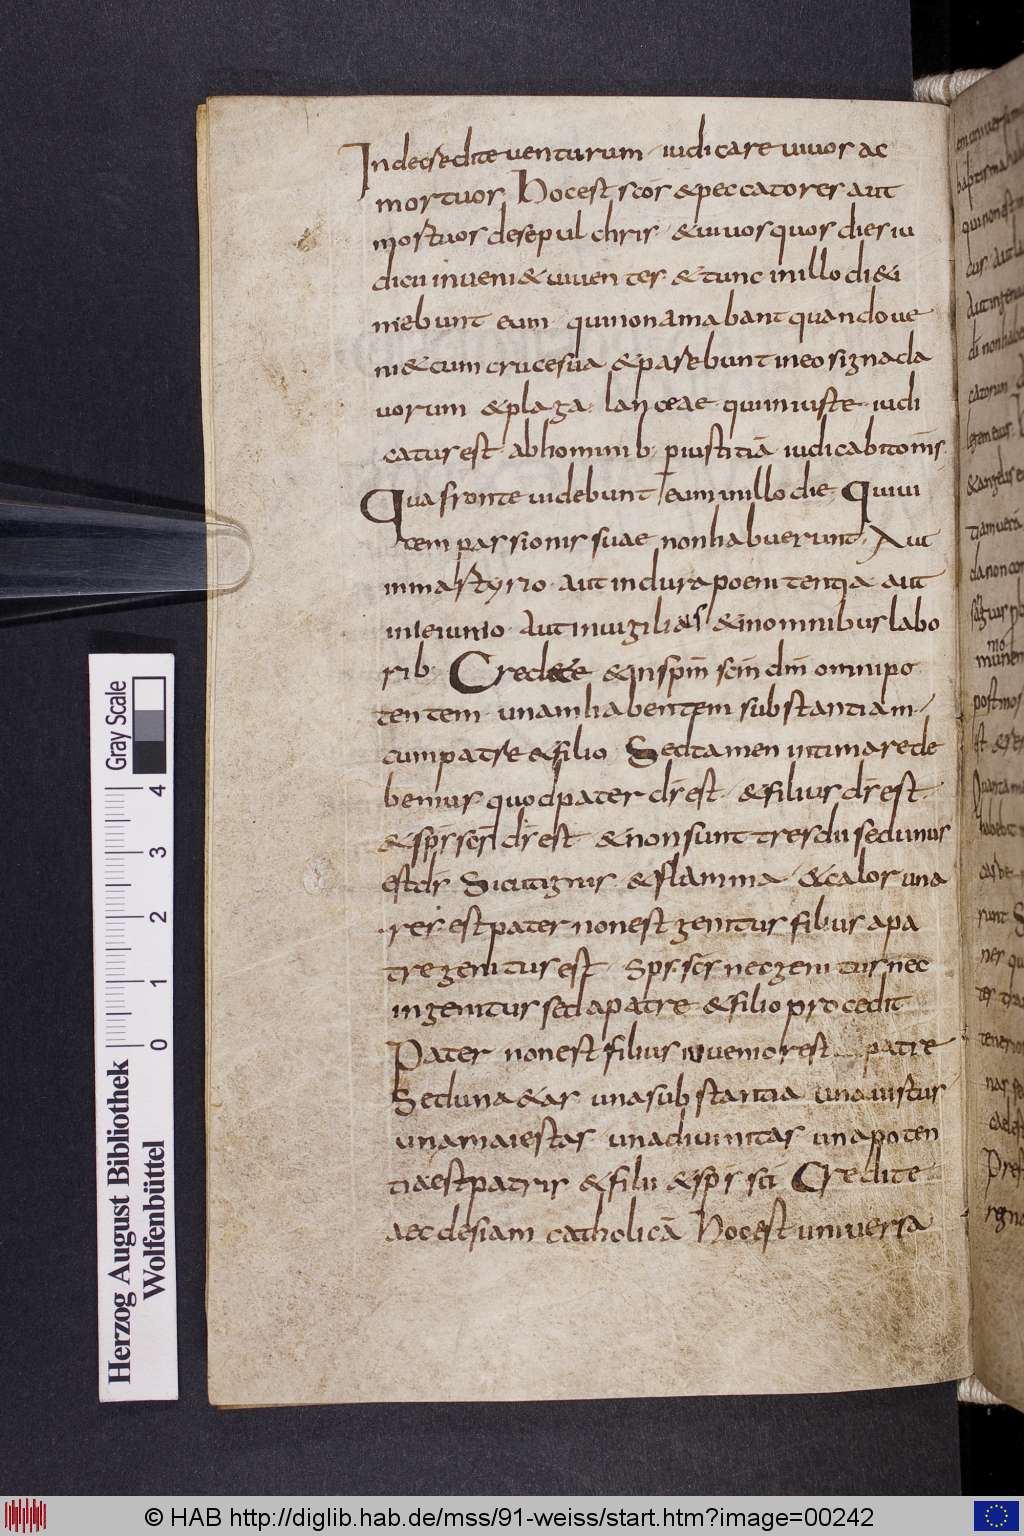 Inde credite venturum iudicare vivos ac
mortuos Hoc est scos & peccatores aut
mortuos de sepulchris & vivos quos dies iu
dicii inveni& viventes & tunc in illo die
niebunt eum qui non amabant quando ve
ni& cum cruce sua & parebunt in eo signa cla
vorum & plaga lanceae qui iniuste iudi
catur est ab hominib. p iustitiā iudicabit omīs
Qua fronte videbunt eum in illo die Qui vi
cem passionis suae non habuerunt Aut
in martyrio aut in dura poenitentia aut
in ieiunio Aut in vigilias & in omnibus labo
rib. Credite & in spm scm dm omnipo
tentem unam habentem substantiam
cum patre & filio Sed tamen intimare de
bemus quod pater ds est & filius ds est
& sps scs ds est & non sunt tres dii sed unus
est ds Sicut ignis & flamma & calor una
res est pater non est genitus filius a pa
tre genitus est sps scs nec genitus nec
ingenitus sed a patre & filio procedit
Pater non est filius iuvenior est patre
Sed una &as una substantia una virtus
una maiestas una divinitas una poten
tia est patris & filii & sps sci Credite
aecclesiam catholicā Hoc est universa
Gray Scale
4
3
2
1
0
Herzog August Bibliothek
Wolfenbüttel
© HAB http://diglib.hab.de/mss/91-weiss/start.htm?image=00242